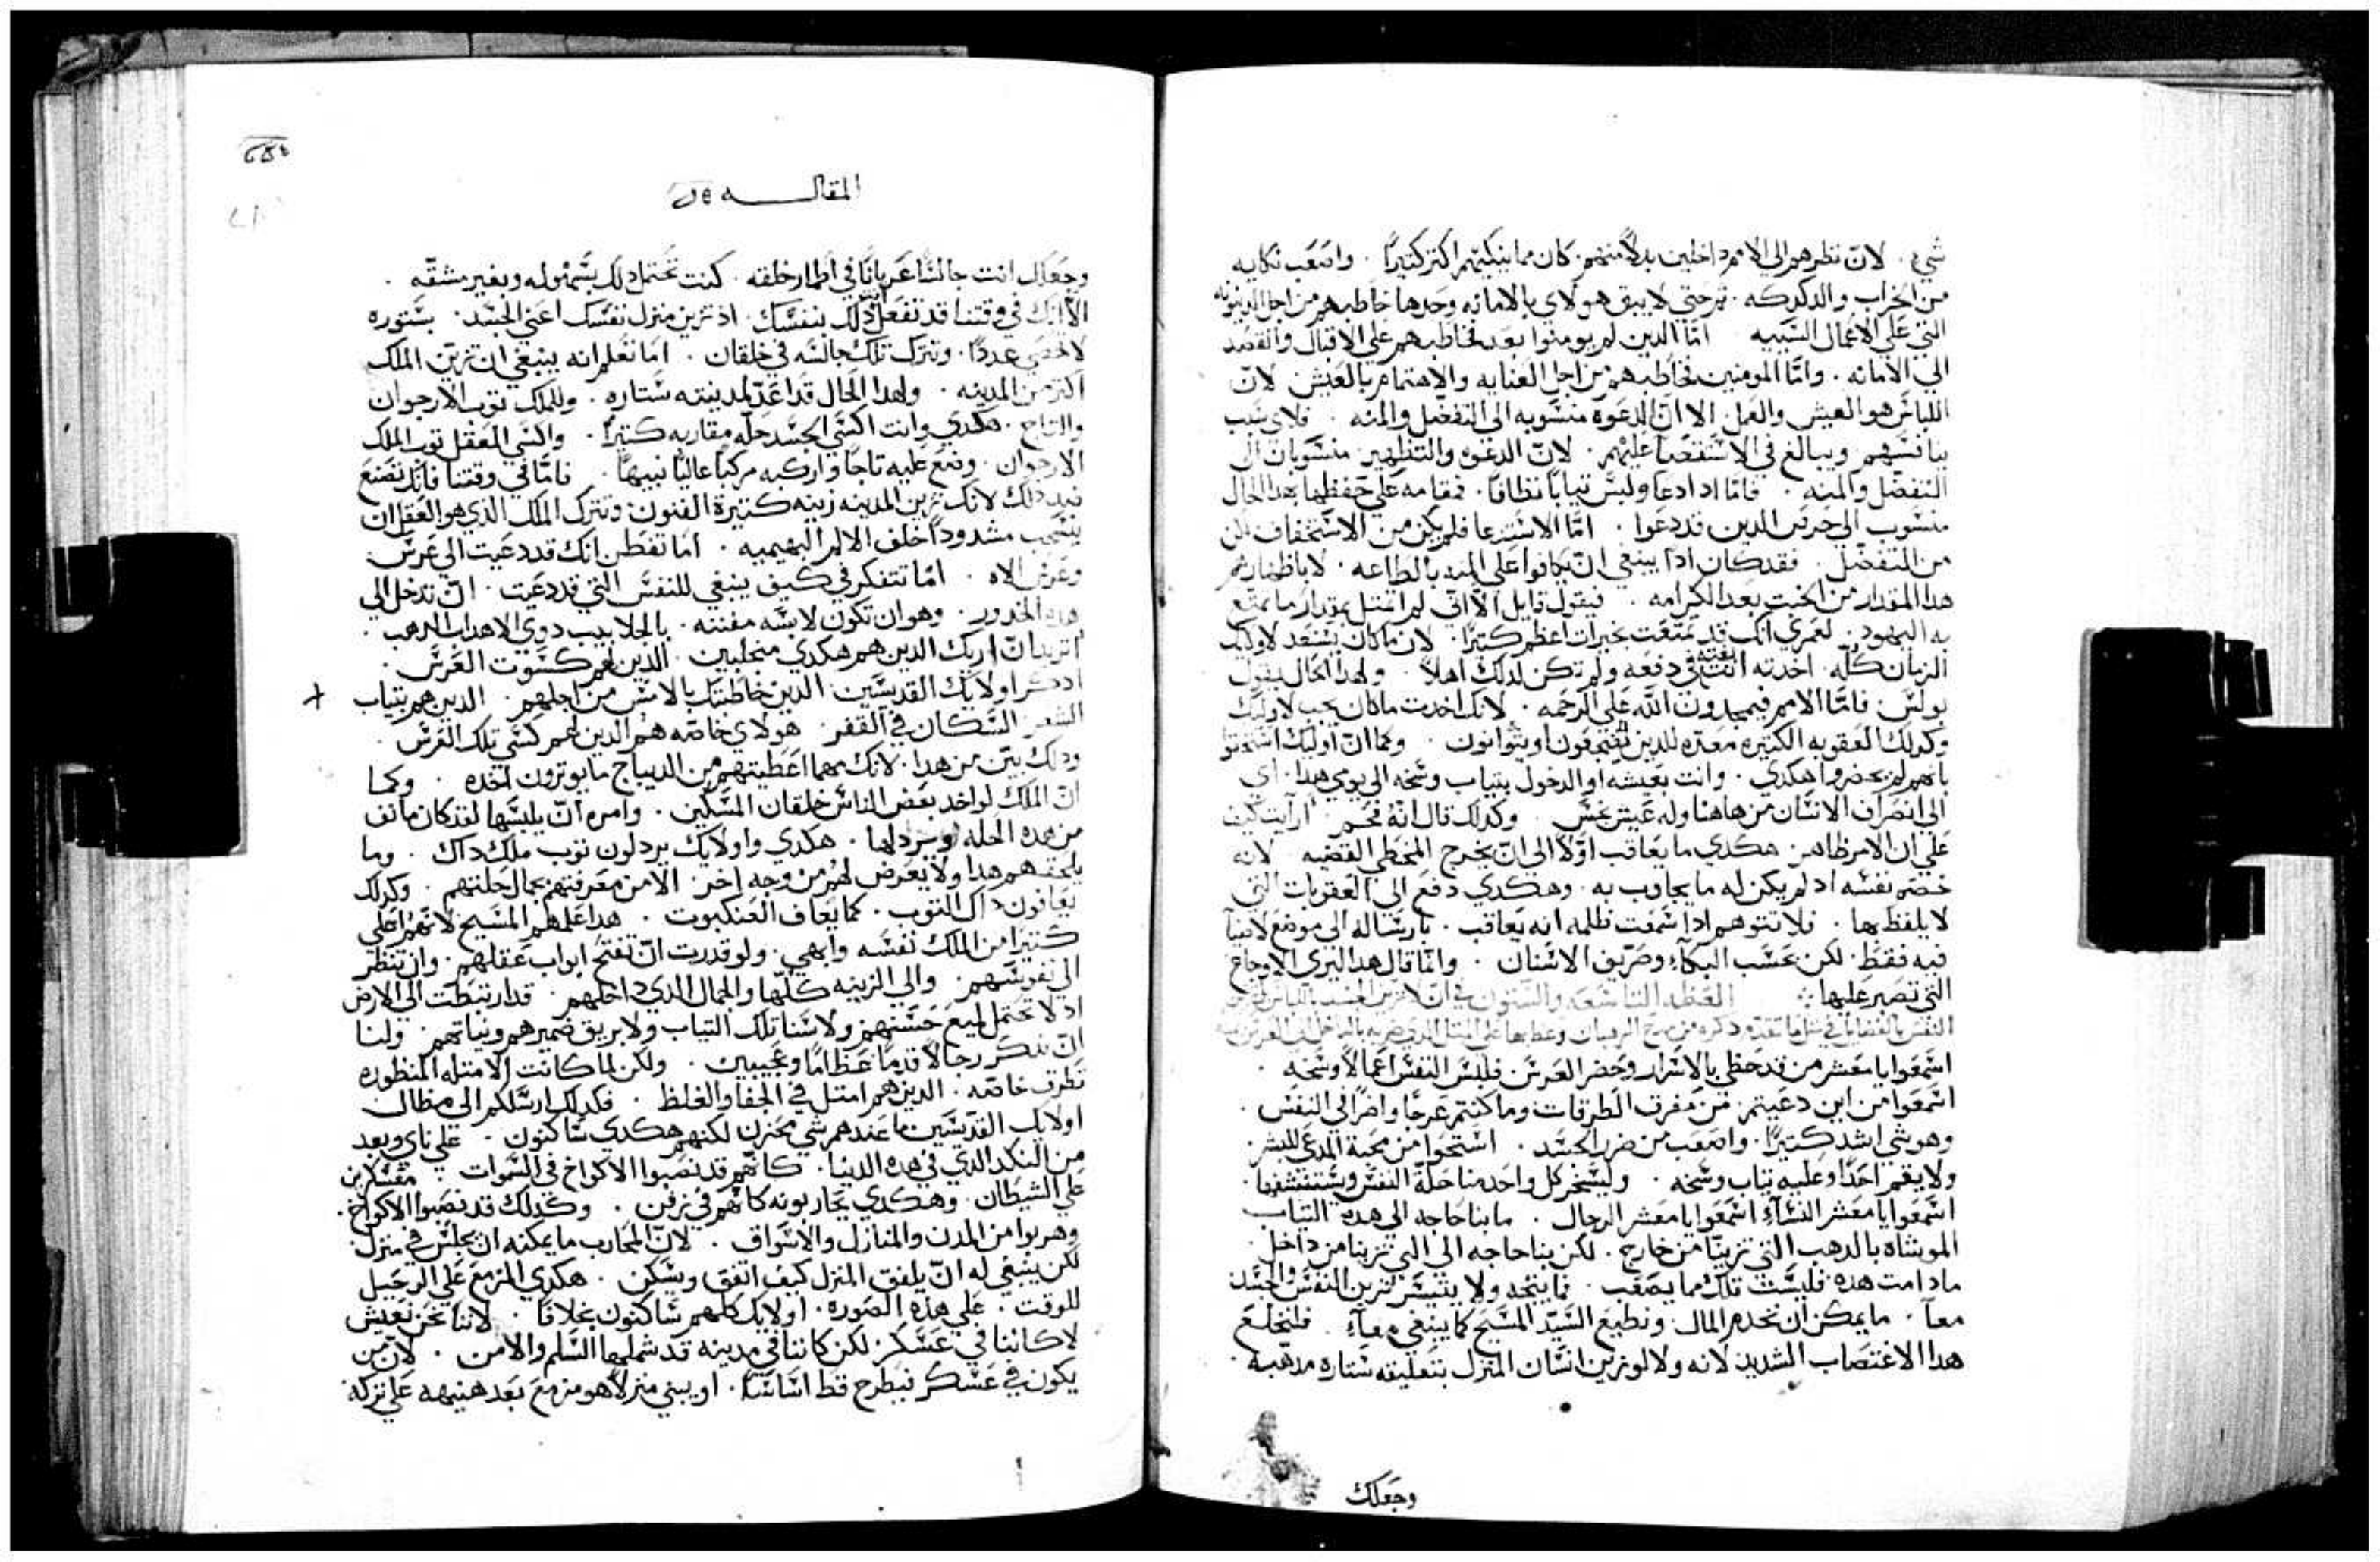 شي . لان نظرهم الى الامم داخلين بدلاً منهم . كان مما ينكيهم اكتر كتيرًا . واصعب نكايه
من الخراب والدكدكه . تم حتي لا يبق هولاي بالامانه وحدها خاطبهم من اجل الدينونه
التي علي الاعمال السيه امّا الدين لم يومنوا بعد فخاطبهم علي الاقبال والقصد
الي الامانه . وامّا المومنين فخاطبهم من اجل العنايه والاهتمام بالعيش لانّ
اللباس هو العيش والعمل الا انّ الدعوه منسوبه الى التفضّل والمنه . فلاي سبب
ينافسهم ويبالغ في الاستقصا عليهم . لانّ الدعوه والتطهير منسوبان الي
التفضّل والمنه . فامّا اد ادعا ولبس تيابًا نظافًا . فمقامه علي حفظها بهدا الحال
منسوب الى حرص الدين قد دعوا . امّا الاستدعا فلم يكن من الاستحقاق لكن
من التفضّل . فقد كان ادًا ينبغي انّ يكافوا علي المنه بالطاعه . لا باظهارهم
هدا المقدار من الخبت بعد الكرامه . فيقول قايل الا انّي لم اتمتل بمقدار ما تمتع
به اليهود . لعمري انك قد تمتعت بخيرات اعظم كتيرًا . لان ما كان يستعد لاوليك
الزمان كلّه . اخدته انت في دفعه ولم تكن لدلك اهلاً . ولهدا الحال يقول
بولس . فامّا الامم فيمجدون اللّه علي الرحمه . لانك اخدت ما كان يجب لاوليك
وكدلك العقوبه الكتيره معدّه للدين يضجعون او يتوانون . وكما انّ اوليك اشتمتوا
بانهم لم يحضروا هكدي . وانت بعيشه او الدخول بتياب وسخه الي يومي هدا . اي
الي انصراف الانسان من هاهنا وله عيش نجس وكدلك قال انّه فحم . ارايت كيف
علي ان الامر ظاهر . هكدي ما يعاقب اوّلاً الى انّ يخرج المخطي القضيه لانه
خصم نفسه اد لم يكن له ما يجاوب به . وهكدي دفع الي العقوبات التي
لا يلفظ بها . فلا تتوهم ادا سمعت ظلمه انه يعاقب . بارساله الي موضع لا ضيا
فيه فقط . لكن عسب البكاء وصريف الاسنان . وانّما قال هدا ليرى الاوجاع
التي تصير عليها . العظه التاسعه والستون في انّ لا نزين الجسد باللباس لكن
النفس بالفضايل
اسمعوا يا معشر من قد حظي بالاسرار وحضر العرس . فلبس النفس اعمالاً وسخه .
اسمعوا من اين دعيتم . من مفرق الطرقات وما كنتم عرجًا واضرا في النفس .
وهو شي اشد كتيرًا . واصعب من ضرر الجسد . استحوا من محبة المدعي للبشر .
ولا يقم احدًا وعليه تياب وسخه . وليسخر كل واحد منا حلّة النفس ويستفتشها .
اسمعوا يا معشر النساء اسمعوا يا معشر الرجال . ما بنا حاجه الي هده التياب
الموشاه بالدهب التي تزيننا من خارج . لكن بنا حاجه الي التي تزيننا من داخل .
مادامت هده . فلبست تلك مما يصعب . فما يتجه ولا يتيسر تزين النفس والجسد
معًا . ما يمكن ان نخدم المال . ونطيع السيّد المسيح كما ينبغي معاً . فلنخلع
هدا الاغتصاب الشديد لانه ولا لو زين انسان المنزل بتعليقه ستاره مدهبه .
وجعلك
المقاله
وجعلك انت جالسًا عريانًا في اطمار خلقه . كنت تحتمل دلك بسهوله وبغير مشقّه .
الا انك في وقتنا قد تفعل دلك بنفسك . اذ تزين منزل نفسك اعني الجسد . بستوره
لا تحصي عددًا . وتترك تلك جالسه في خلقان . اما تعلم انه ينبغي ان تزيّن الملك
اكتر من المدينه . ولهدا الحال قد اعدّ لمدينته ستاره . وللملك توب الارجوان
والتاج . هكدي وانت اكسي الجسد حلّه مقاربه كتيرًا . واكسي العقل توب الملك
الارجوان . وضع عليه تاجًا واركبه مركبًا عاليًا نبيهًا . فامّا في وقتنا فانك تصنع
ضد دلك لانك تزين المدينه زينه كتيرة الفنون وتترك الملك الذي هو العقل ان
ينسحب مشدودًا خلف الالم البهيميه . اما تفطن انك قد دعيت الي عرس
وعرس الاه . امّا تتفكر في كيف ينبغي للنفس التي قد دعيت . انّ تدخل الي
هده الخدور . وهو ان تكون لابسه مفننه . بالجلابيب دوي الاهداب الدهب .
اتريد انّ اريك الدين هم هكدي متجلببين . الذين لهم كسوت العرس .
ادكر اولايك القديسين الدين خاطبتك بالامس من اجلهم . الدين هم بتياب
الشعر السكان في القفر . هولاي خاصّه هم الدين لهم كسي تلك العرس .
ودلك بيّن من هدا . لانك مهما اعطيتهم من الديباج ما يوترون اخده . وكما
انّ الملك لو اخد بعض الناس خلقان المسكين . وامره انّ يلبسها لقد كان ما نف
من هده الحله ويردلها . هكدي واولايك يردلون توب ملك داك . وما
يلحقهم هدا ولا يعرض لهم من وجه اخر . الا من معرفتهم بجمال حلتهم . وكدلك
يعافون داك التوب . كما يعاف العنكبوت . هدا علمهم المسيح لانهم اعلي
كتيرًا من الملك نفسه وابهي . ولو قدرت انّ تفتح ابواب عقلهم . وان تنظر
الي نفوسهم . والي الزينه كلّها والجمال الدي داخلهم . قد ارتبطت الي الارض
اد لا تحتمل لميع حسنهم ولا سنا تلك التياب ولا بريق ضميرهم ونياتهم . ولنا
انّ ندكر رجالاً قدمًا عظامًا وعجيبين . ولكن لما كانت الامتله المنظوره
تطرق خاصه . الدين هم امتل في الجفا والغلظ . فكدلك ارسلكم الي مظال
اولايك القديسين ما عندهم شي محزن لكنهم هكدي ساكنون . علي ناي وبعد
من النكد الدي في هده الدنيا . كانّهم قد نصبوا الاكواخ في السموات
علي الشيطان . وهكدي يحاربونه كانّهم في زفن . وكدلك قد نصبوا الاكواخ .
وهربوا من المدن والمنازل والاسواق . لانّ المحارب ما يمكنه ان يجلس في منزل
لكن ينبغي له انّ يلفق المنزل كيف اتفق ويسكن . هكدي المزمع علي الرحيل
للوقت . علي هذه الصوره . اولايك كلهم ساكنون بخلافا . لاننا نحن نعيش
لا كاننا في عسكر . لكن كاننا في مدينه قد شملها السّلم والامن . لانّ من
يكون في عسكر فيطرح قط اساسًا . او يبني منزلاً هو مزمع بعد هنيهه علي تركه